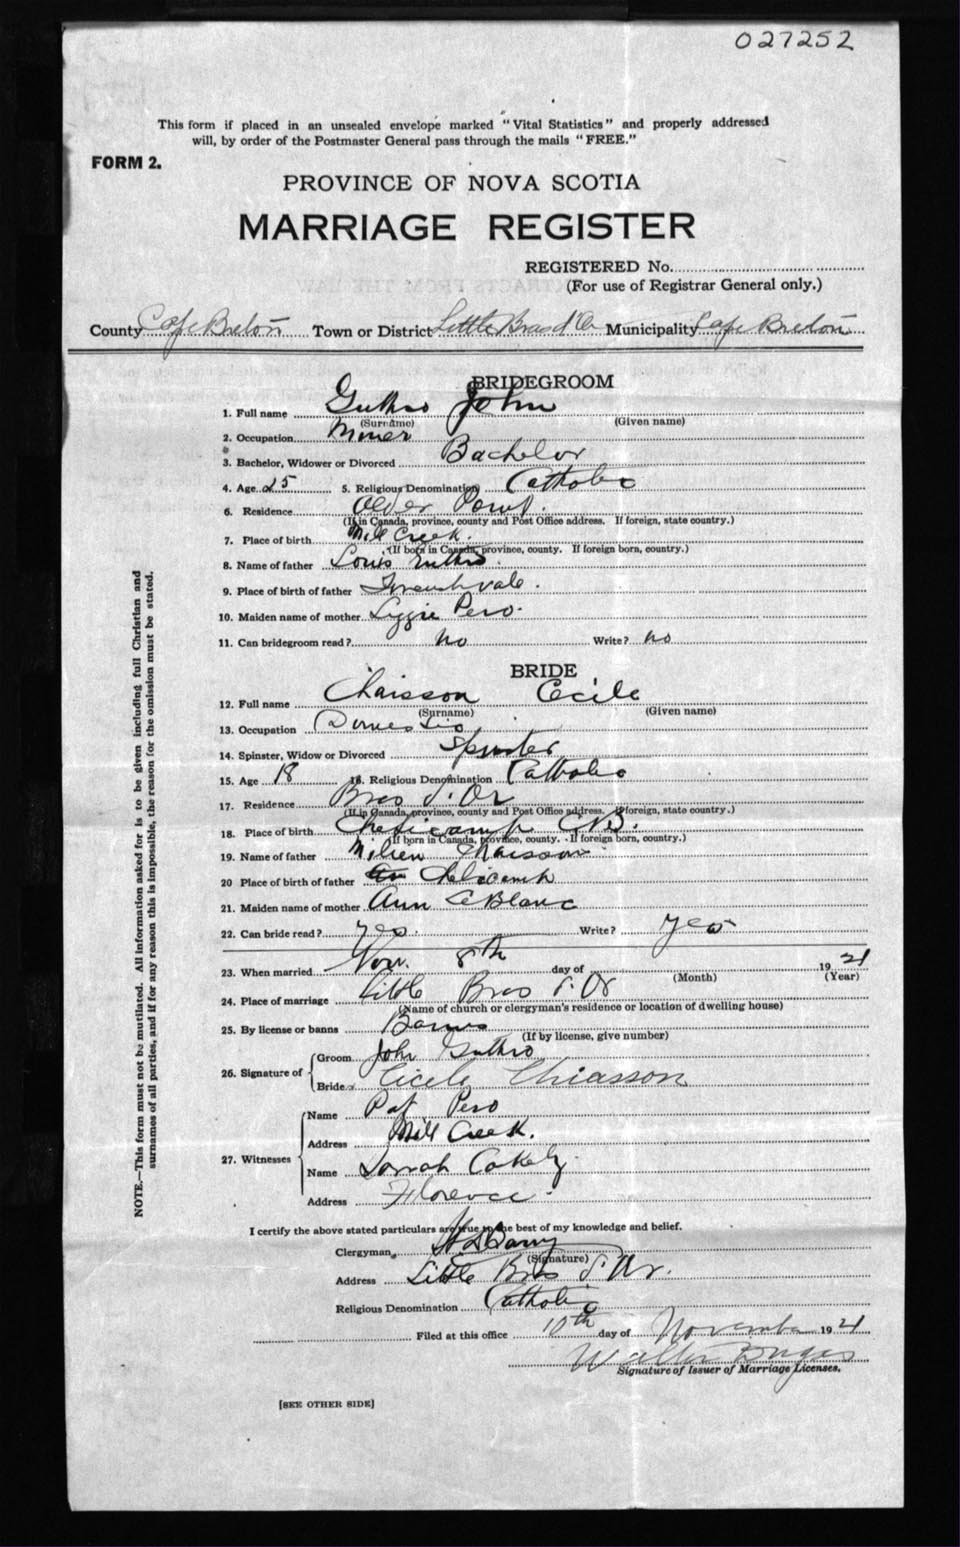 027252
This form if placed in an unsealed envelope marked "Vital Statistics" and properly addressed
will, by order of the Postmaster General pass through the mails "FREE."
FORM 2.
PROVINCE OF NOVA SCOTIA
MARRIAGE REGISTER
REGISTERED No.
(For use of Registrar General only.)
County Cape Breton Town or District Little Bras d'Or Municipality Cape Breton
BRIDEGROOM
1. Full name Guthro John
(Surname) (Given name)
2. Occupation Miner
3. Bachelor, Widower or Divorced Bachelor
4. Age 25 5. Religious Denomination Catholic
6. Residence Alder Point
(If in Canada, province, county and Post Office address. If foreign, state country.)
7. Place of birth Mill Creek.
(If born in Canada, province, county. If foreign born, country.)
8. Name of father Louis Guthro
9. Place of birth of father Frenchvale.
10. Maiden name of mother Lizzie Pero.
11. Can bridegroom read? No Write? no
BRIDE
12. Full name Chaisson Cecile
(Surname) (Given name)
13. Occupation Domestic
14. Spinster, Widow or Divorced Spinster
15. Age 18 16. Religious Denomination Catholic
17. Residence Bras d'Or
(If in Canada, province, county and Post Office address. If foreign, state country.)
18. Place of birth Cheticamp CB.
(If born in Canada, province, county. - If foreign born, country.)
19. Name of father Chaisson
20 Place of birth of father
21. Maiden name of mother Ann LeBlanc
22. Can bride read? yes. Write? yes
23. When married Nov. 8th day of 1921
(Month) (Year)
24. Place of marriage Little Bras d'Or
(Name of church or clergyman's residence or location of dwelling house)
25. By license or banns Banns
(If by license, give number)
26. Signature of { Groom John Guthro
Bride Cicele Chiasson
27. Witnesses { Name Pat Pero
Address Mill Creek.
Name Sarah
Address Florence.
I certify the above stated particulars are true to the best of my knowledge and belief.
Clergyman
(Signature)
Address Little Bras d'Or.
Religious Denomination Catholic
Filed at this office 10th day of November 1921
Walter
Signature of Issuer of Marriage Licenses.
[SEE OTHER SIDE]
NOTE.—This form must not be mutilated. All information asked for is to be given including full Christian and
surnames of all parties, and if for any reason this is impossible, the reason for the omission must be stated.